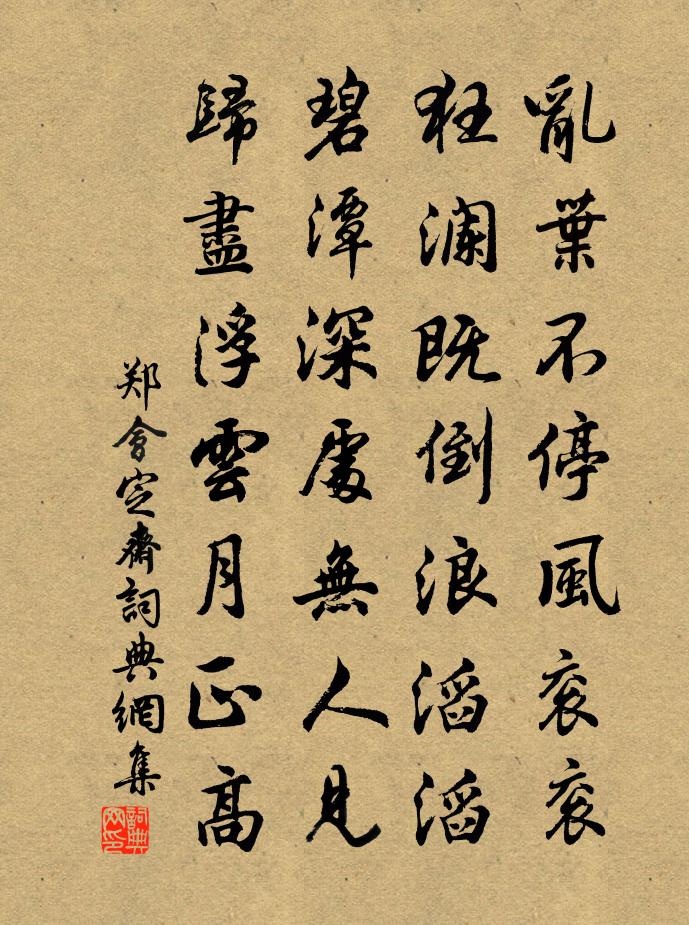 亂葉不停風衮衮
狂瀾既倒浪滔滔
碧潭深處無人見
歸盡浮雲月正高
郑會定齋詞典網集
詞典网印